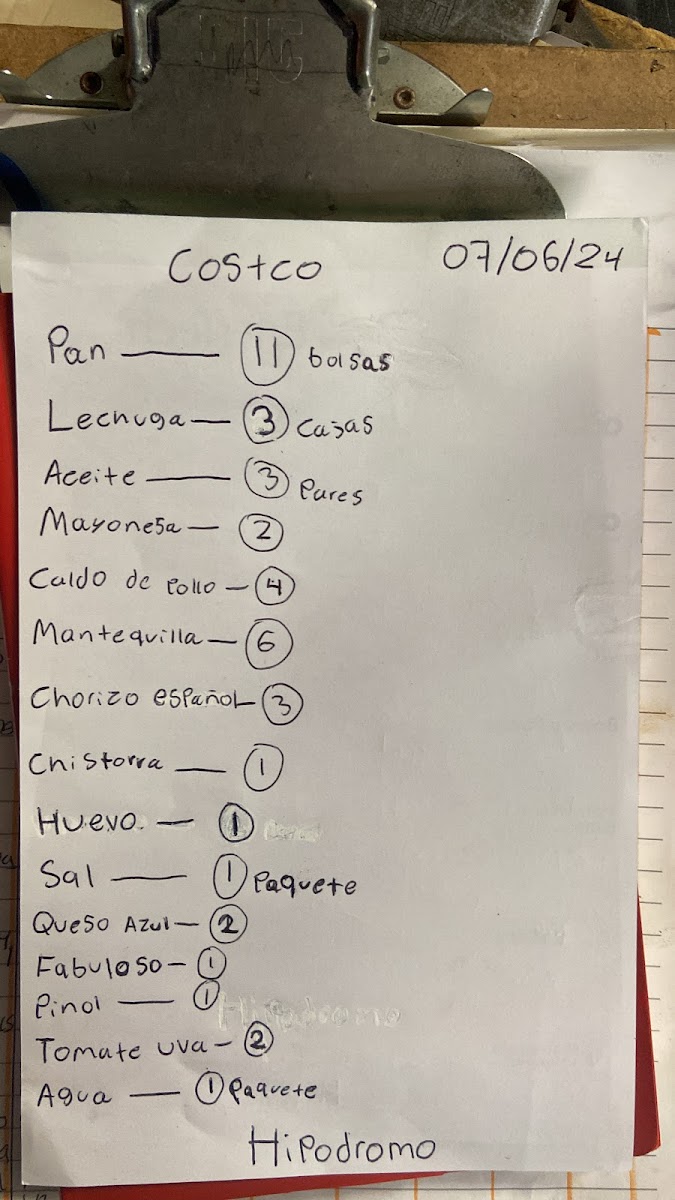 Costco 07/06/24
Pan — 11 bolsas
Lechuga — 3 Cajas
Aceite — 3 Pares
Mayonesa — 2
Caldo de Pollo — 4
Mantequilla — 6
Chorizo español — 3
Chistorra — 1
Huevo. — 1
Sal — 1 Paquete
Queso Azul — 2
Fabuloso — 1
Pinol — 1
Hipodromo
Tomate uva — 2
Agua — 1 Paquete
Hipodromo